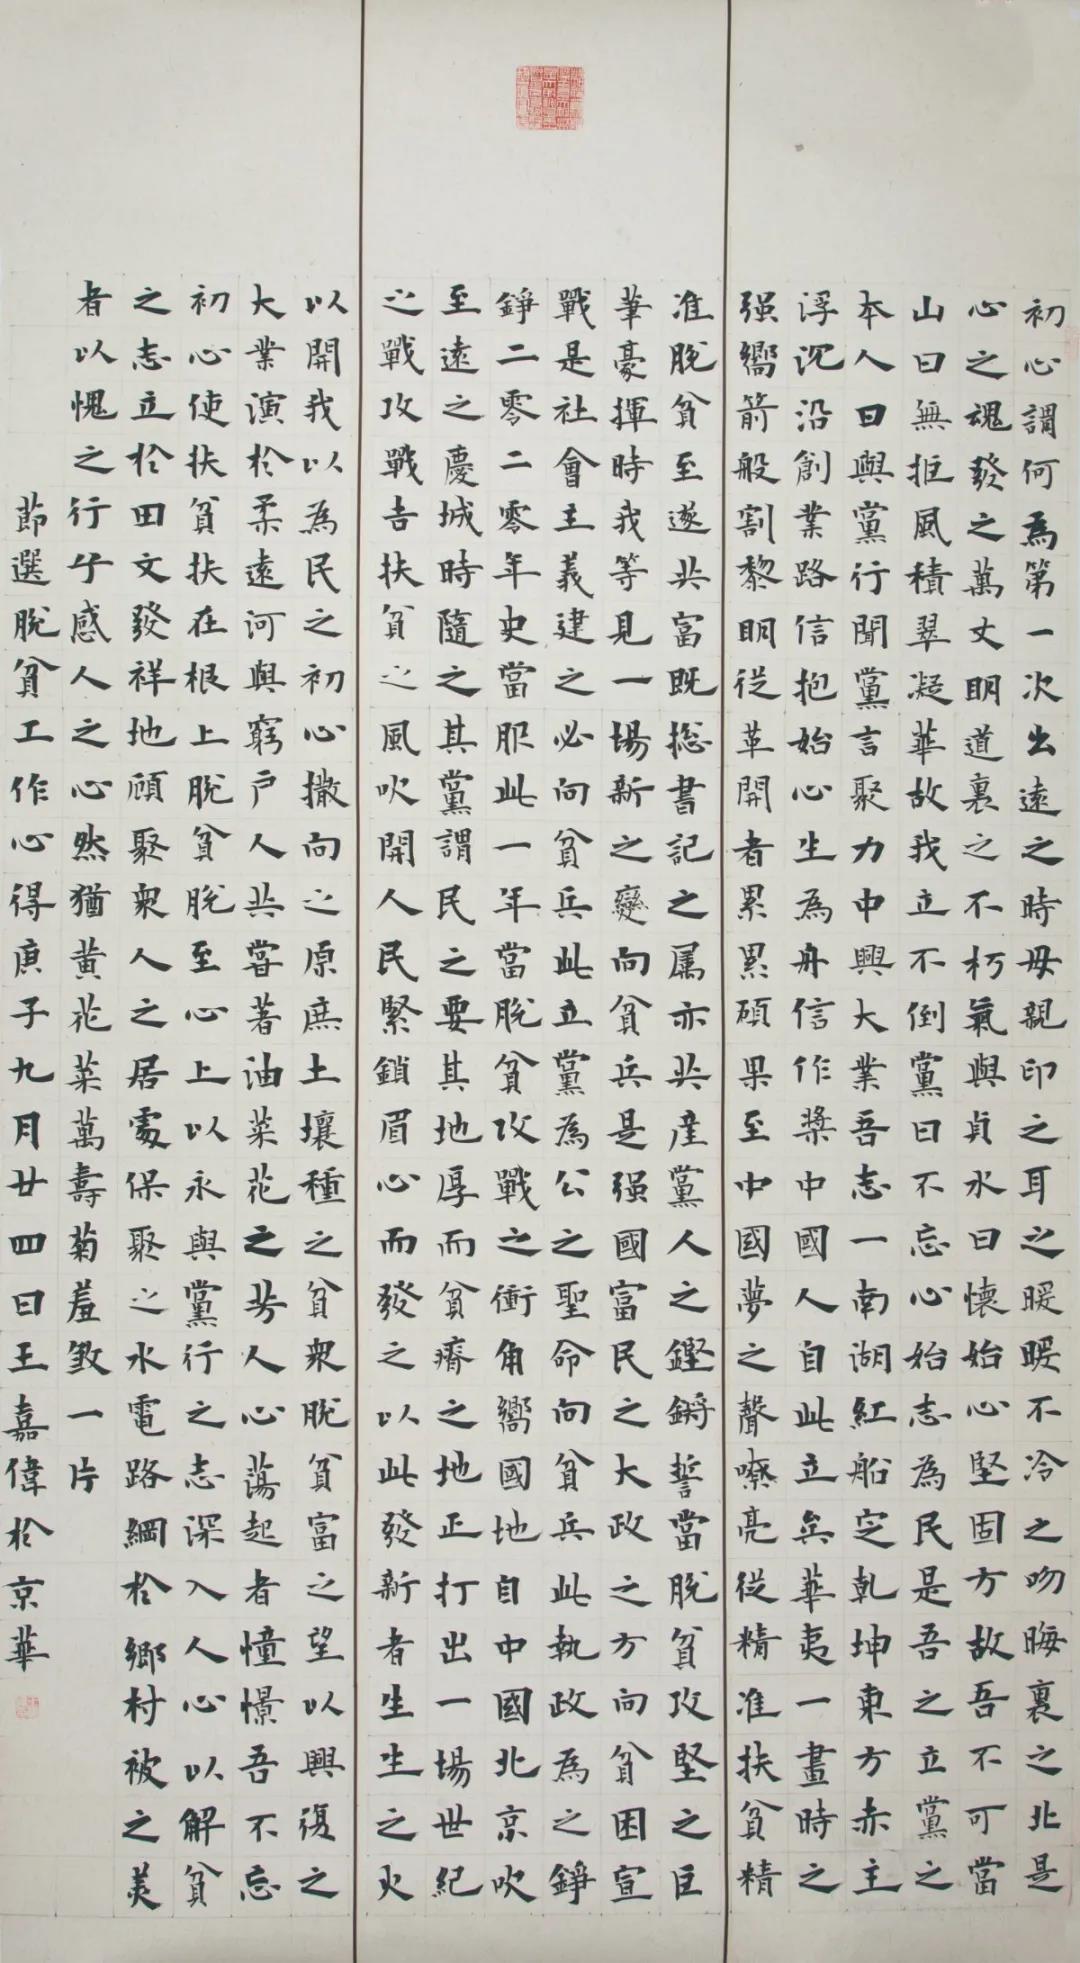 初心謂何為第一次出遠之時母親印之耳之暖暖不冷之吻晦裏之北是
心之魂發之萬丈明道裏之不朽氣與貞水曰懷始心堅固方故吾不可當
山曰無拒風積翠凝華故我立不倒黨曰不忘心始志為民是吾之立黨之
本人曰與黨行聞黨言聚力中興大業吾志一南湖紅船定乹坤東方赤主
浮沉沿創業路信抱始心生為舟信作槳中國人自此立矣華夷一畫時之
强嚮箭般割黎明從革開者累累碩果至中國夢之聲嘹亮從精准扶貧精
准脫貧至遂共富既總書記之属亦共產黨人之鏗鏘誓當脫貧攻堅之巨
筆豪揮時我等見一場新之變向貧兵是强國富民之大政之方向貧困宣
戰是社會主義建之必向貧兵此立黨為公之聖命向貧兵此執政為之錚
錚二零二零年史當服此一年當脫貧攻戰之衝角嚮國地自中國北京吹
至遠之慶城時隨之其黨謂民之要其地厚而貧瘠之地正打出一場世紀
之戰攻戰吉扶貧之風吹開人民緊鎖眉心而發之以此發新者生生之火
以開我以為民之初心撒向之原庶土壤種之貧衆脫貧富之望以興復之
大業演於柔遠河與窮户人共嘗著油菜花之芳人心蕩起者憧憬吾不忘
初心使扶貧扶在根上脫貧脫至心上以永與黨行之志深入人心以解貧
之志立於田文發祥地顧聚衆人之居處保聚之水電路網於鄉村被之美
者以愧之行乎感人之心然猶黄花菜萬壽菊羞致一片
節選脫貧工作心得庚子九月廿四日王嘉偉於京華